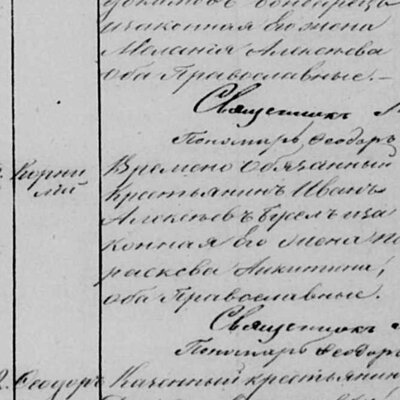 изаконная его жена
Мелания Алексѣева
оба Православные.
Священникъ
Пономарь Ѳеодоръ
Корни
лій
Временно обязанный
крестьянинъ Иванъ
Алексѣевъ и зa
конная его жена Па
раскева Никитина,
оба Православные.
Священникъ
Пономарь Ѳеодоръ
2. Ѳеодоръ Казенный крестьянин